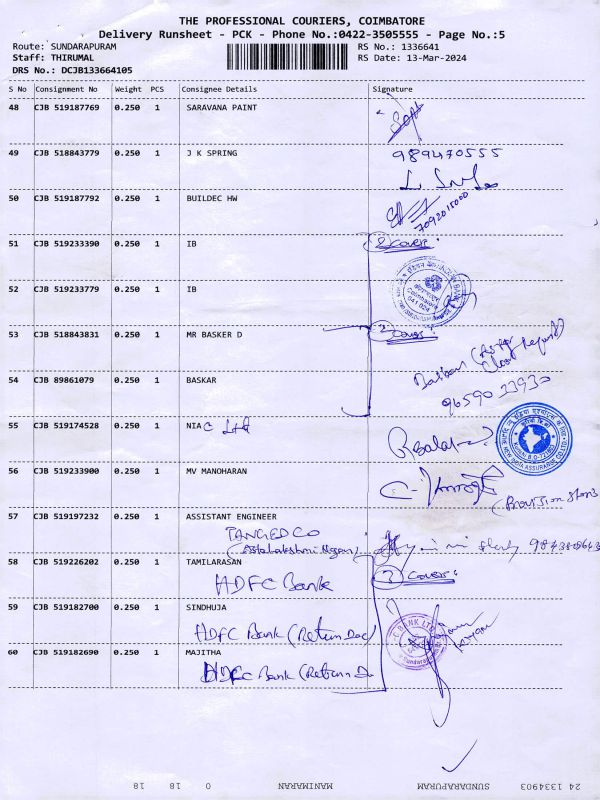 THE PROFESSIONAL COURIERS, COIMBATORE
Delivery Runsheet - PCK - Phone No.:0422-3505555 - Page No.:5
Route: SUNDARAPURAM RS No.: 1336641
Staff: THIRUMAL RS Date: 13-Mar-2024
DRS No.: DCJB133664105
S No Consignment No Weight PCS Consignee Details Signature
48 CJB 519187769 0.250 1 SARAVANA PAINT
49 CJB 518843779 0.250 1 J K SPRING 9894470555
50 CJB 519187792 0.250 1 BUILDEC HW
7092015000
51 CJB 519233390 0.250 1 IB 2 cover:
52 CJB 519233779 0.250 1 IB
53 CJB 518843831 0.250 1 MR BASKER D 2 cover:
54 CJB 89861079 0.250 1 BASKAR
9659023930
55 CJB 519174528 0.250 1 NIAC Ltd
56 CJB 519233900 0.250 1 MV MANOHARAN
(Provision Store)
57 CJB 519197232 0.250 1 ASSISTANT ENGINEER
TANGEDCO
(Astalakshmi Nagar)
58 CJB 519226202 0.250 1 TAMILARASAN 3 Cover:
HDFC Bank
59 CJB 519182700 0.250 1 SINDHUJA
HDFC Bank (Return Doc)
60 CJB 519182690 0.250 1 MAJITHA
HDFC Bank (Return D
24 1334903 SUNDARAPURAM MANIMARAN 0 18 18